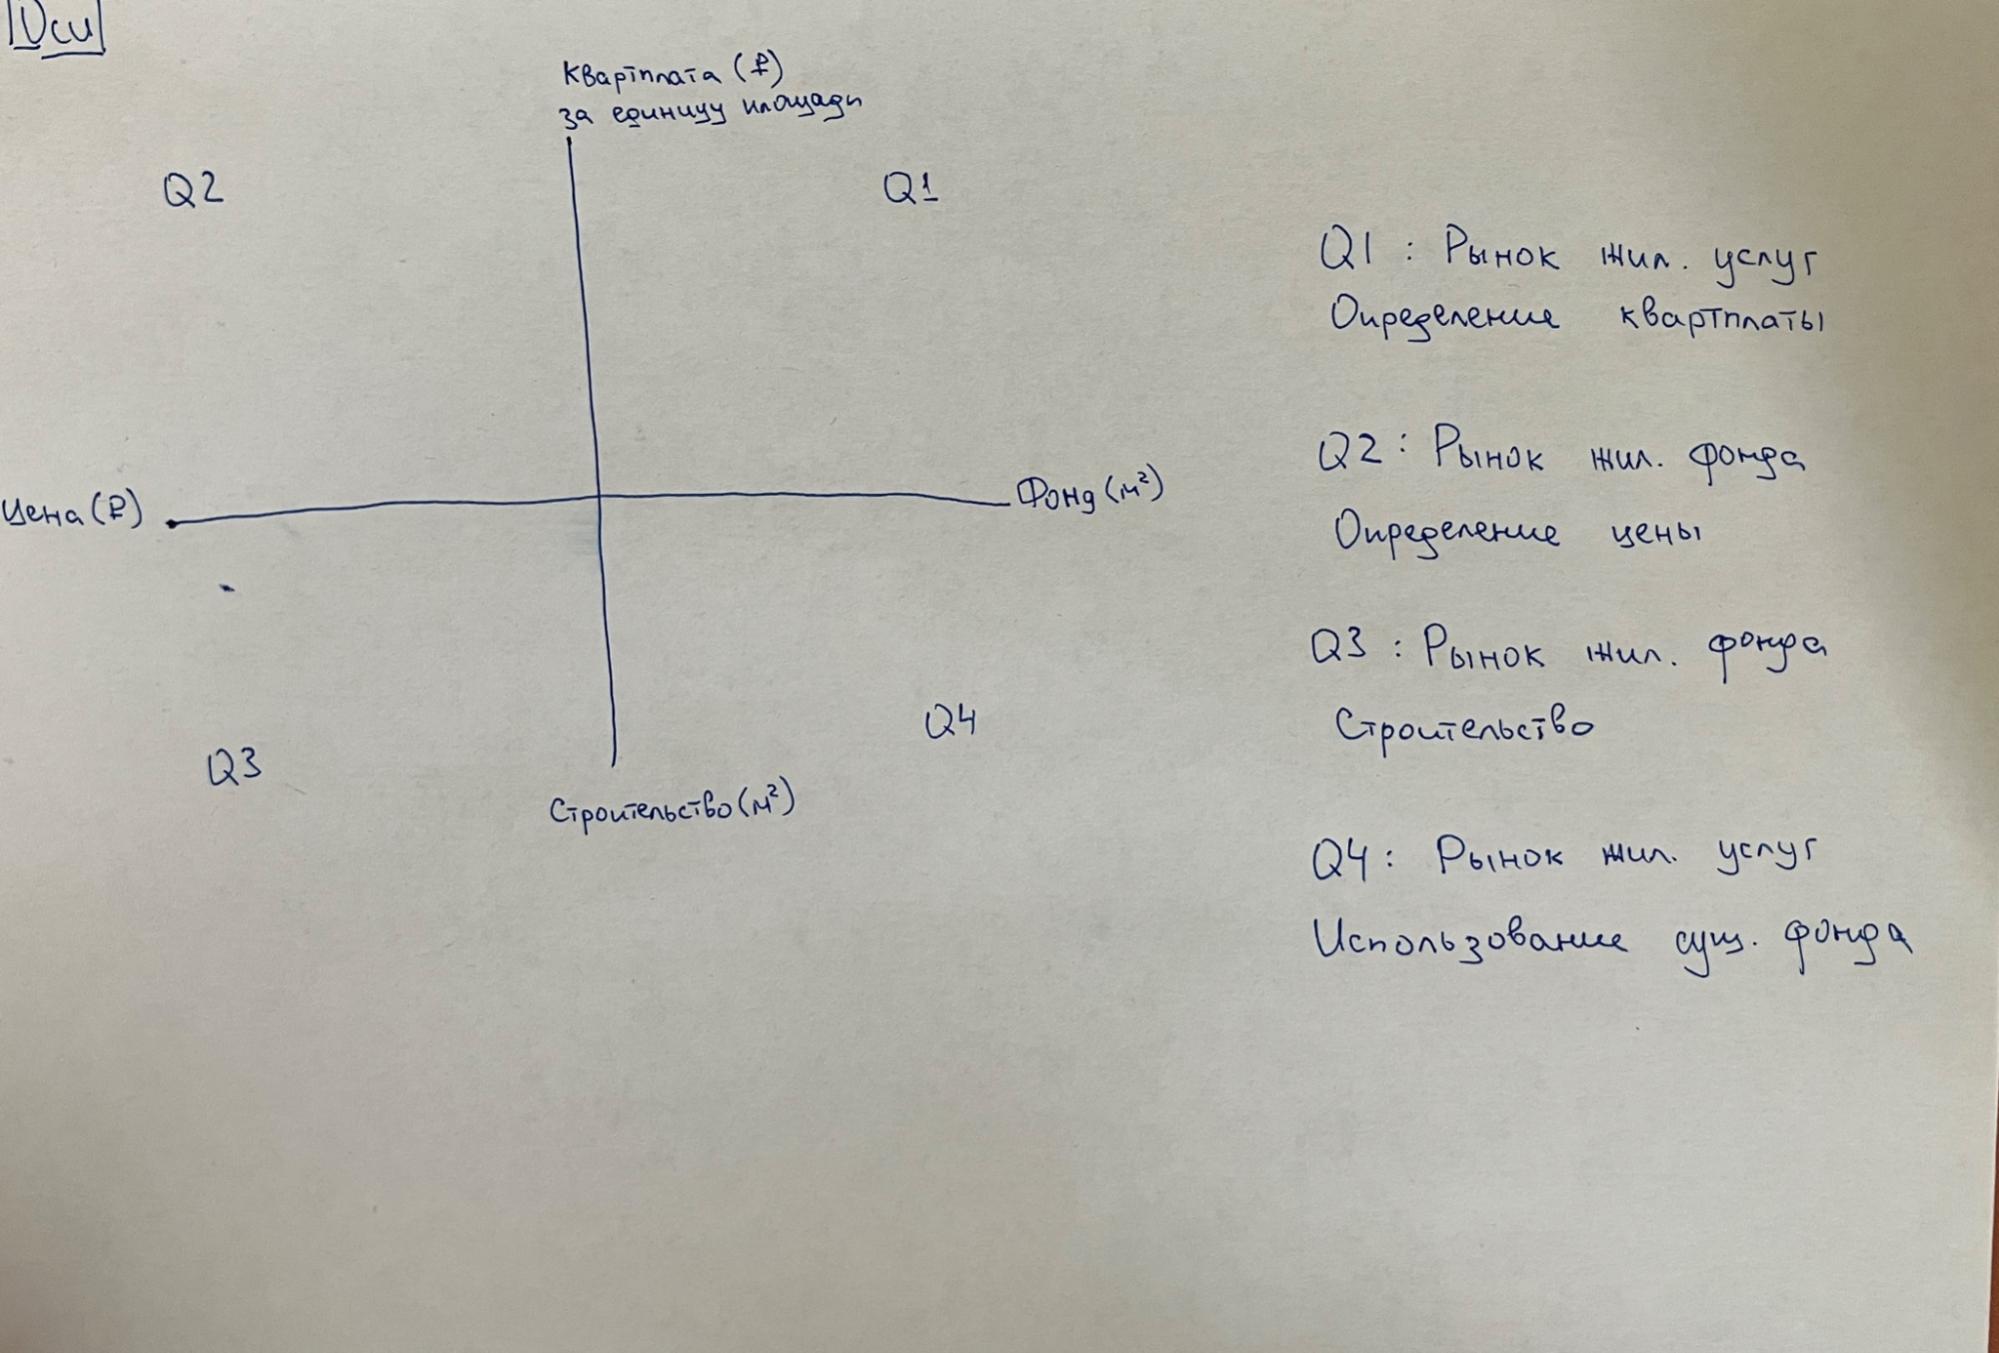 Оси
Квартплата (₽)
за единицу площади
Q2
Q1
Цена (₽)
Фонд (м²)
Q3
Q4
Строительство (м²)
Q1 : Рынок жил. услуг
Определение квартплаты
Q2 : Рынок жил. фонда
Определение цены
Q3 : Рынок жил. фонда
Строительство
Q4 : Рынок жил. услуг
Использование сущ. фонда